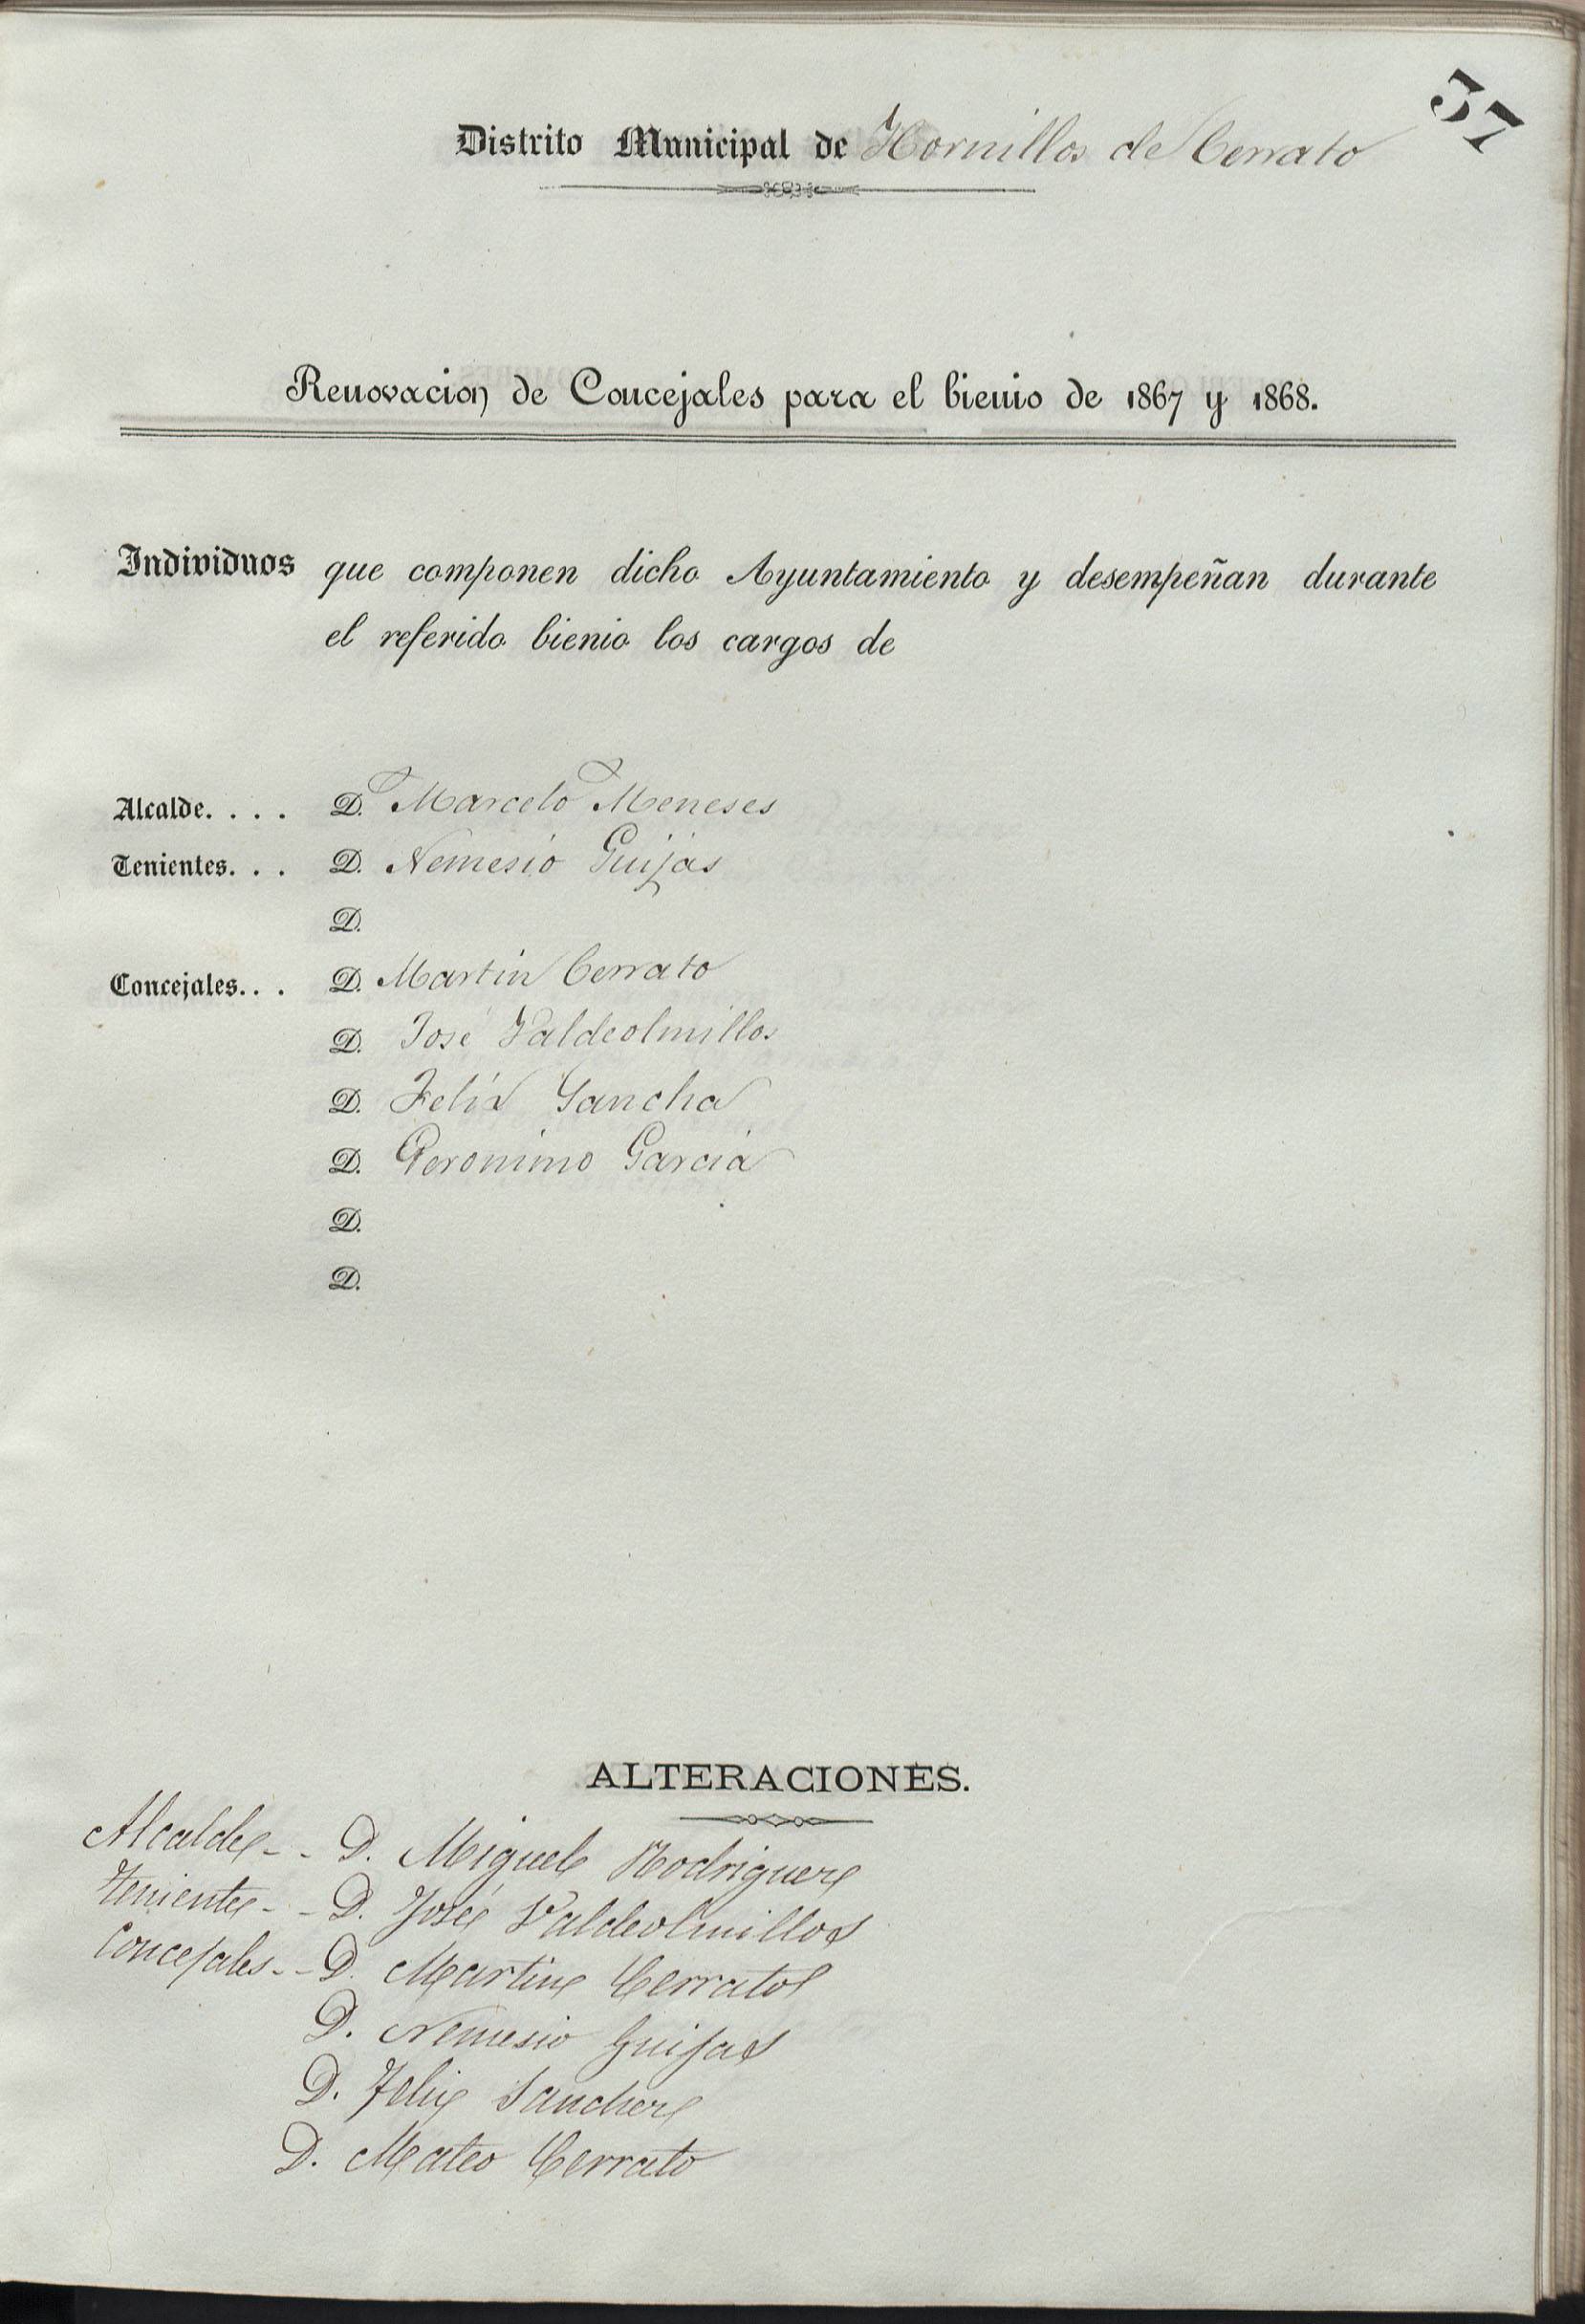 37
Distrito Municipal de Hornillos de Cerrato
Renovacion de Concejales para el bienio de 1867 y 1868.
Individuos que componen dicho Ayuntamiento y desempeñan durante
el referido bienio los cargos de
Alcalde. . . . D. Marcelo Meneses
Tenientes. . . D. Nemesio Guijas
D.
Concejales. . . D. Martin Cerrato
D. José Valdeolmillos
D. Felix Sancha
D. Geronimo Garcia
D.
D.
ALTERACIONES.
Alcalde - - D. Miguel Rodriguez
Teniente - - D. José Valdeolmillos
Concejales - - D. Martin Cerrato
D. Nemesio Guijas
D. Felix Sanchez
D. Mateo Cerrato